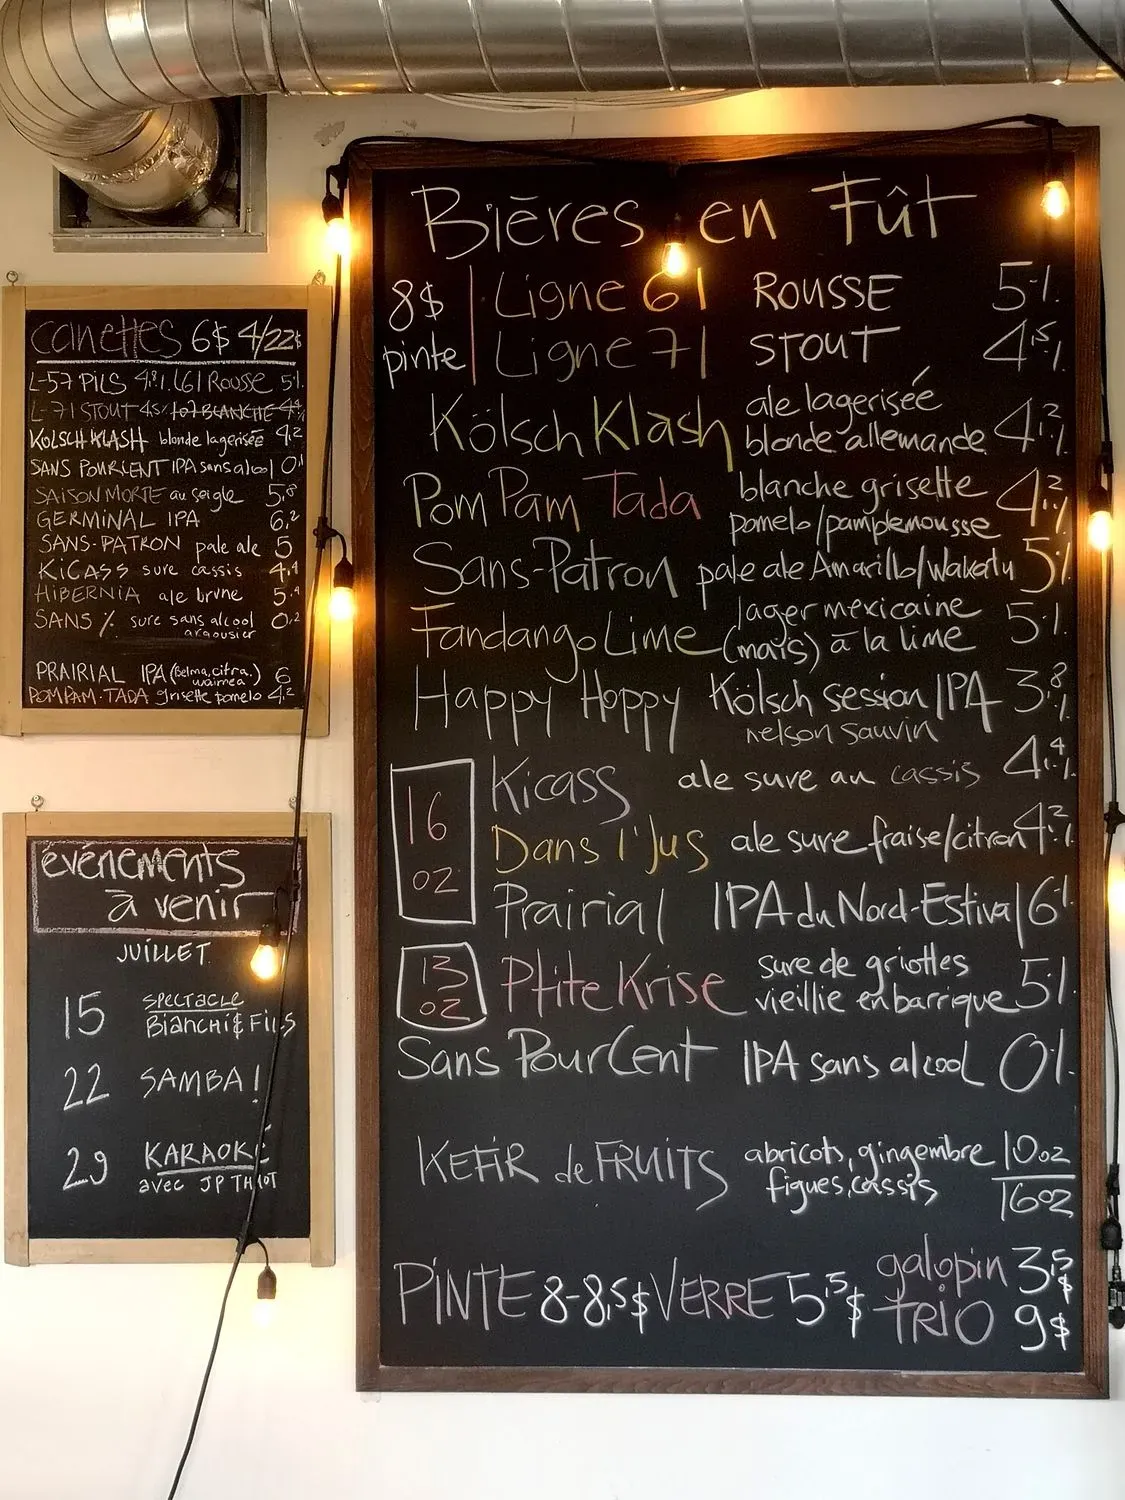 canettes 6$ 4/22$
L-57 PILS 4,8%. L61 Rousse 5%
L-71 STOUT 4,5% L07 BLANCHE 4,4%
KÖLSCH KLASH blonde lagerisée 4,2
SANS POURCENT IPA sans alcool 0%
SAISON MORTE au seigle 5,8
GERMINAL IPA 6,2
SANS-PATRON pale ale 5
KiCASS sure cassis 4,4
HIBERNIA ale brune 5,4
SANS % sure sans alcool 0,2
argousier
PRAIRIAL IPA (Belma, citra,) 6
waimea
POMPAM-TADA grisette pomelo 4,2
événements
à venir
JUILLET
15 SPECTACLE
BiANCHi & FiLS
22 SAMBA!
29 KARAOKÉ
avec JP
Bières en Fût
8$ Ligne 61 ROUSSE 5%
pinte Ligne 71 STOUT 4,5%
Kölsch Klash ale lagerisée
blonde allemande 4,2%
PomPam Tada blanche grisette 4,2%
pomelo/pamplemousse
Sans-Patron pale ale Amarillo/Wakatu 5%
Fandango Lime lager mexicaine 5%
(maïs) à la lime
Happy Hoppy Kölsch session IPA 3,8%
nelson sauvin
16 oz
Kicass ale sure au cassis 4,4%
Dans l'Jus ale sure fraise/citron 4,2%
Prairial IPA du Nord-Estival 6%
13 oz
Ptite Krise sure de griottes
vieillie en barrique 5%
Sans PourCent IPA sans alcool 0%
KEFiR de FRUITS abricots, gingembre 10oz
figues, cassis 16oz
PINTE 8-8,5$ VERRE 5,5$ galopin 3,5$
TRIO 9$